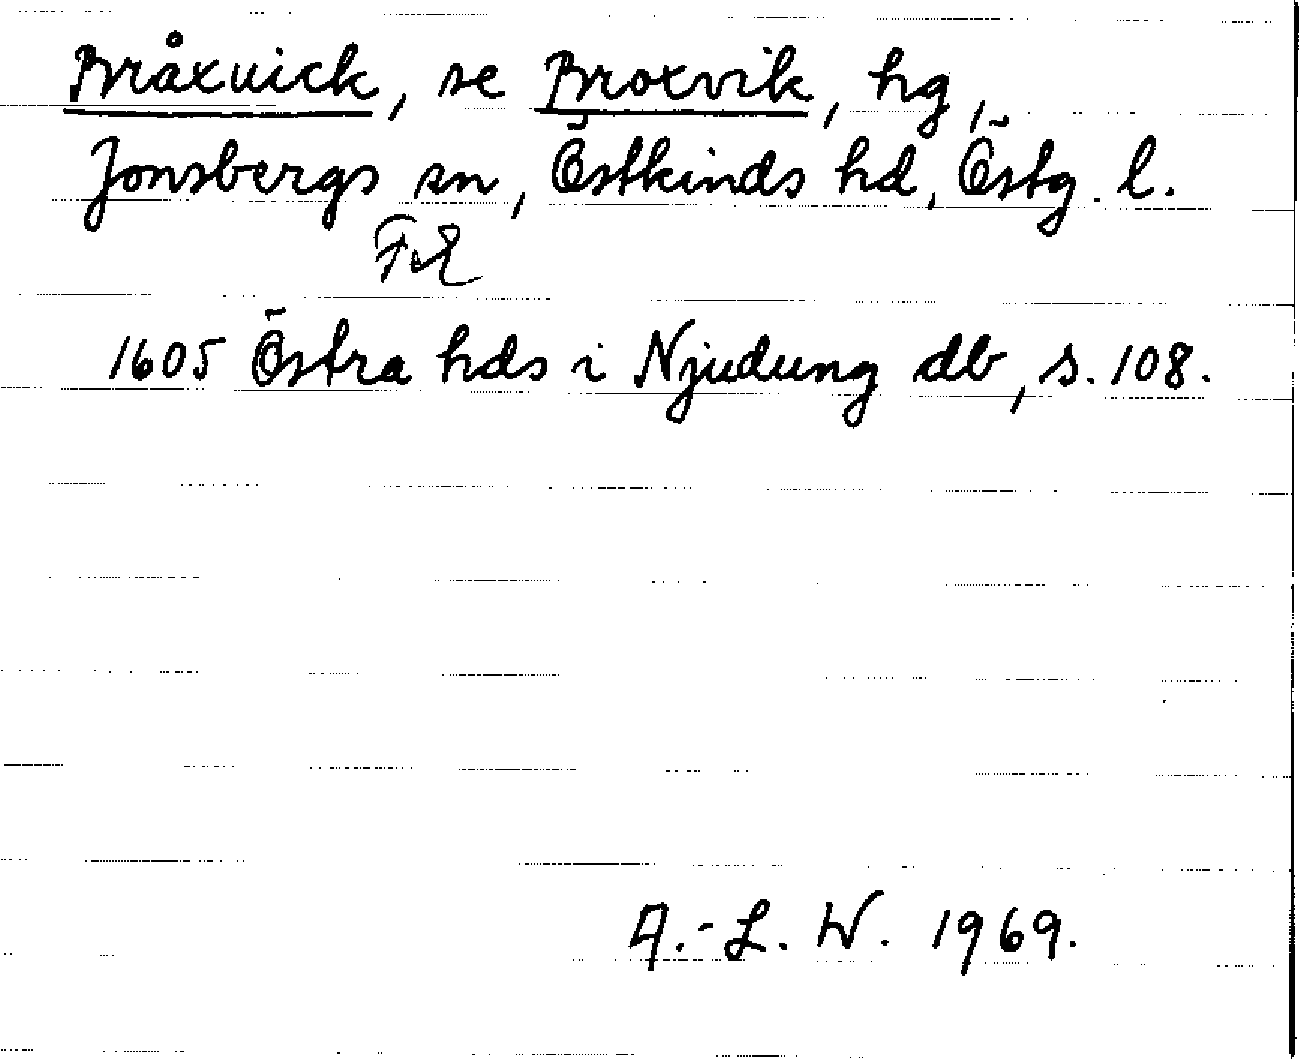 Bråxuick, se Broxvik, hg,
Jonsbergs sn, Östkinds hd, Östg. l.
1605 Östra hds i Njudung db, s. 108.
A.-L. W. 1969.